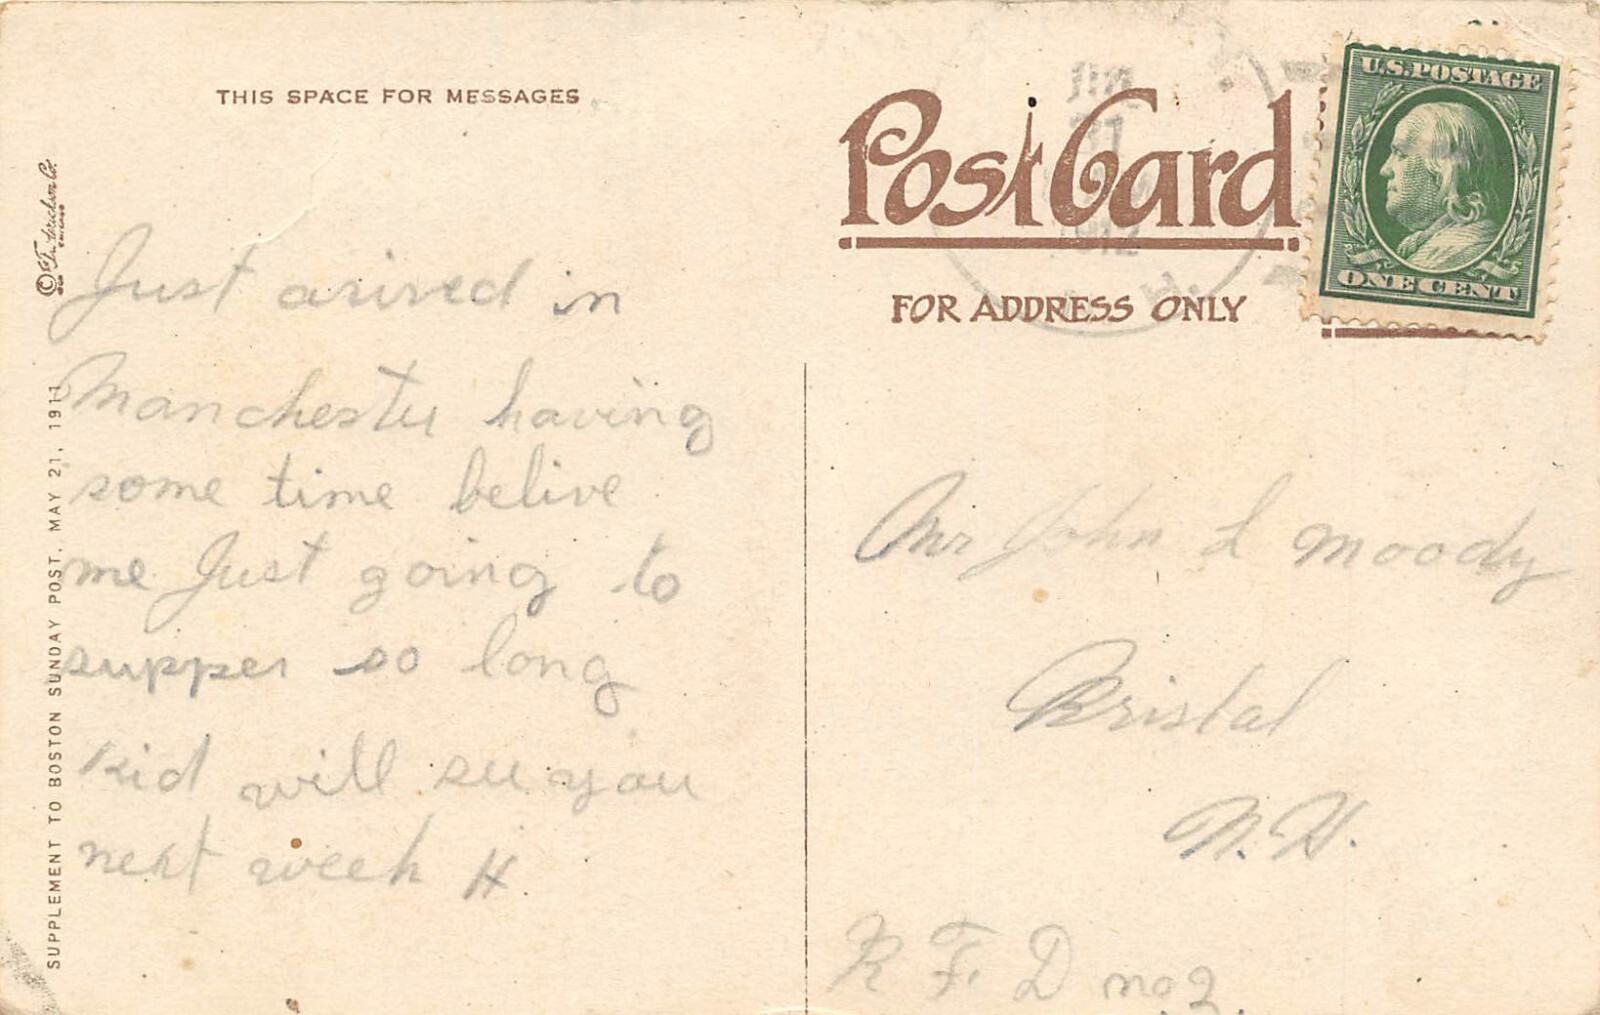 THIS SPACE FOR MESSAGES
Just arived in
Manchester having
some time belive
me Just going to
supper so long
kid will see you
next week H
SUPPLEMENT TO BOSTON SUNDAY POST, MAY 21, 1911
Post Card
FOR ADDRESS ONLY
U.S. POSTAGE
ONE CENT
1912
H.
Mr John L Moody
Bristal
N.H.
R F D no 2.